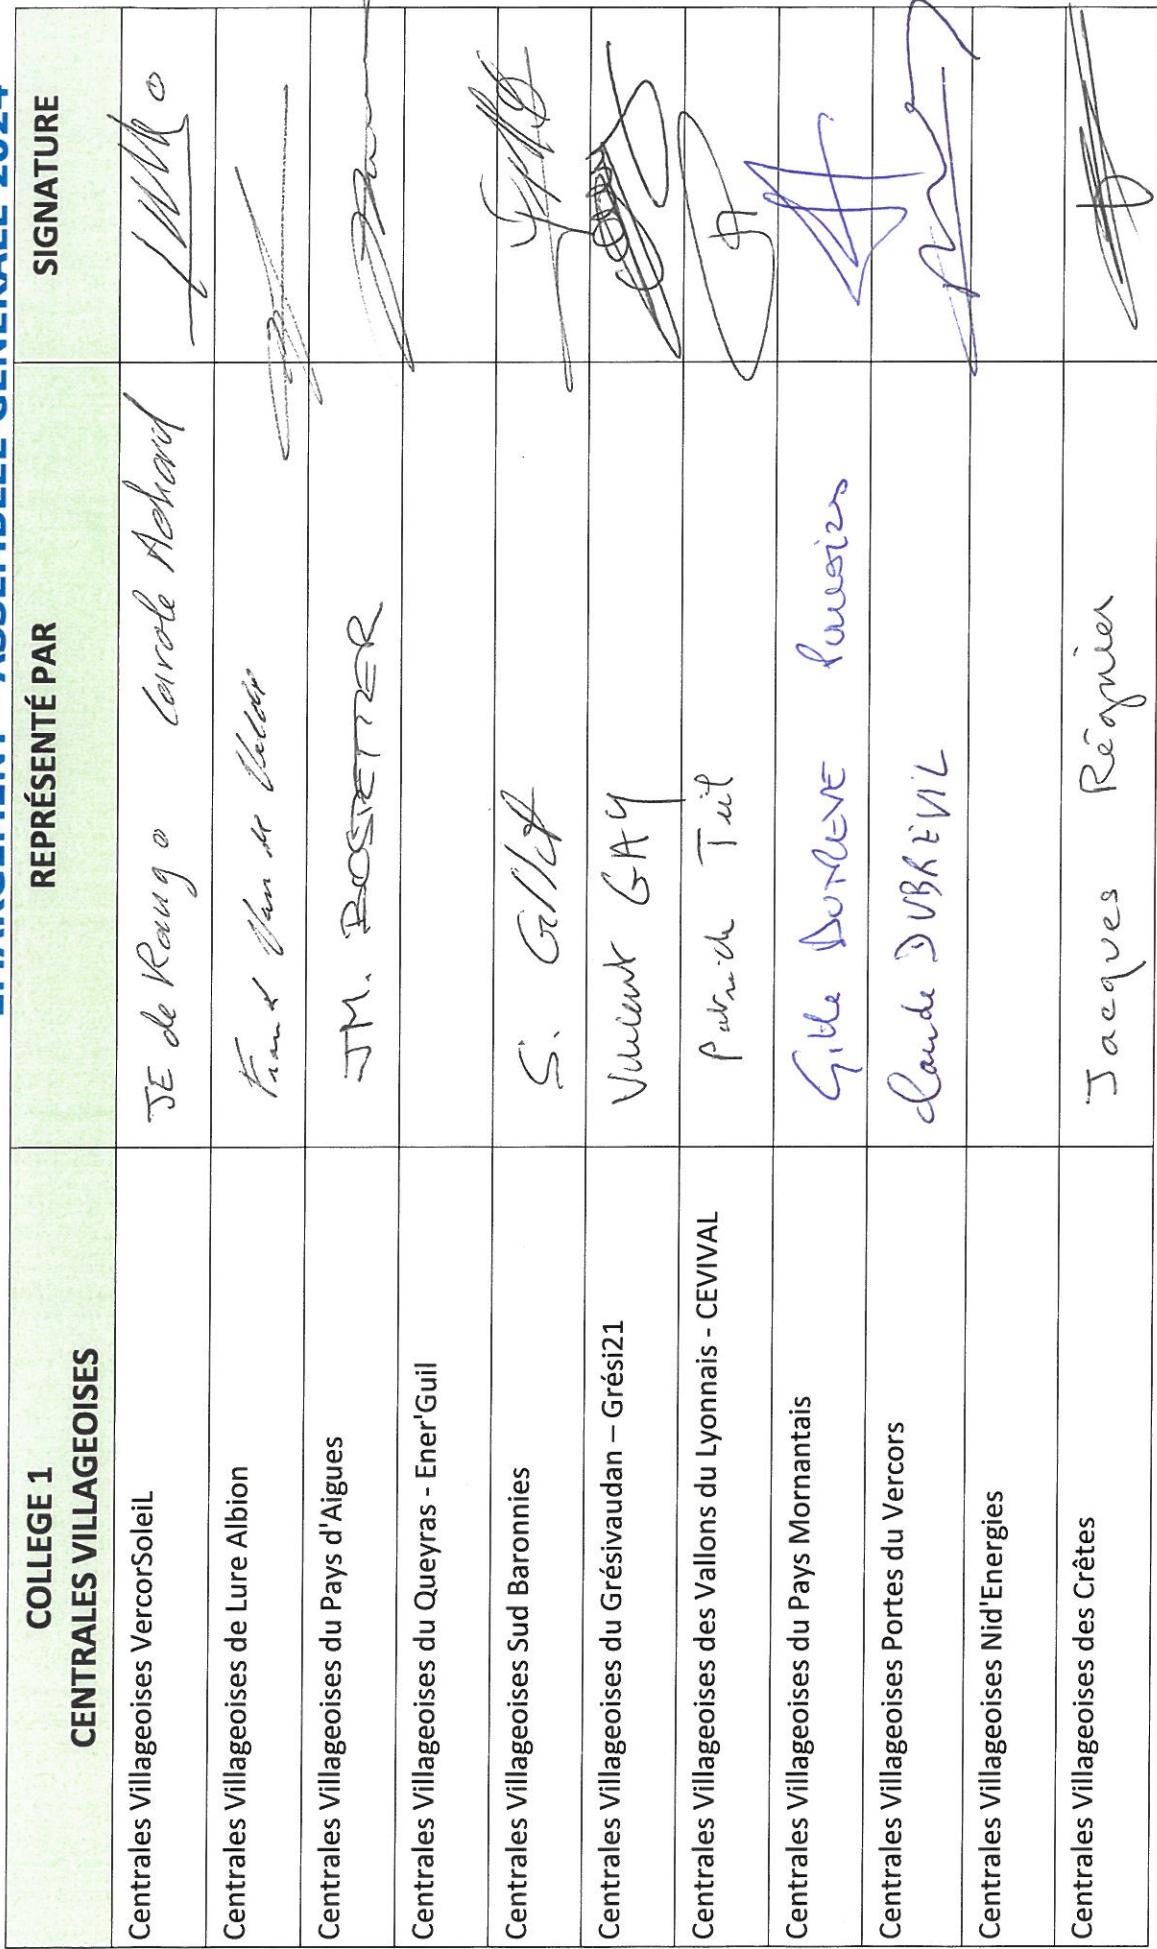 EMARGEMENT - ASSEMBLEE GENERALE 2024
COLLEGE 1
CENTRALES VILLAGEOISES
REPRÉSENTÉ PAR
SIGNATURE
Centrales Villageoises VercorSoleiL
JE de Rango Carole Achard
Centrales Villageoises de Lure Albion
Van de Velde
Centrales Villageoises du Pays d'Aigues
JM. BOSSETTER
Centrales Villageoises du Queyras - Ener'Guil
Centrales Villageoises Sud Baronnies
S. Gillet
Centrales Villageoises du Grésivaudan – Grési21
Vincent GAY
Centrales Villageoises des Vallons du Lyonnais - CEVIVAL
Patrick Tuil
Centrales Villageoises du Pays Mornantais
Gilles
Centrales Villageoises Portes du Vercors
Claude DUBREVIL
Centrales Villageoises Nid'Energies
Centrales Villageoises des Crêtes
Jacques Régnier